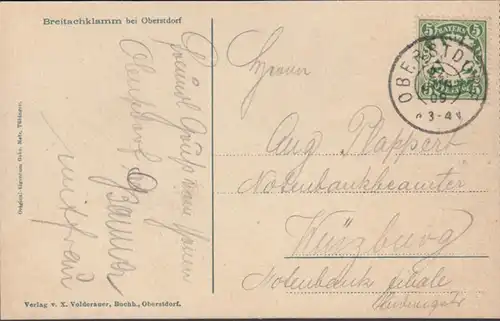 Breitachklamm bei Oberstdorf
Original-Eigentum Gebr. Metz, Tübingen.
Oberstdorf
mit Frau
Verlag v. X. Volderauer, Buchh., Oberstdorf.
5 BAYERN 5
OBERSTDORF
09
3-4
Herrn
Aug Plappert
Notenbankbeamter
Würzburg
Notenbank filiale